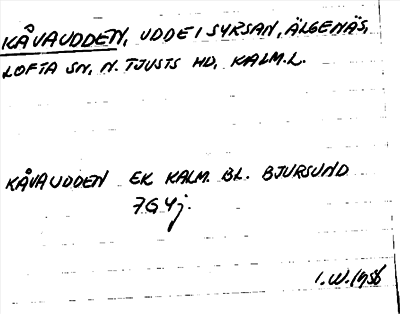 KÅVAUDDEN, UDDE I SYRSAN, ÄLGENÄS,
LOFTA SN, N. TJUSTS HD, KALM.L.
KÅVAUDDEN EK KALM. BL. BJURSUND
7G4j.
I.W. 1956